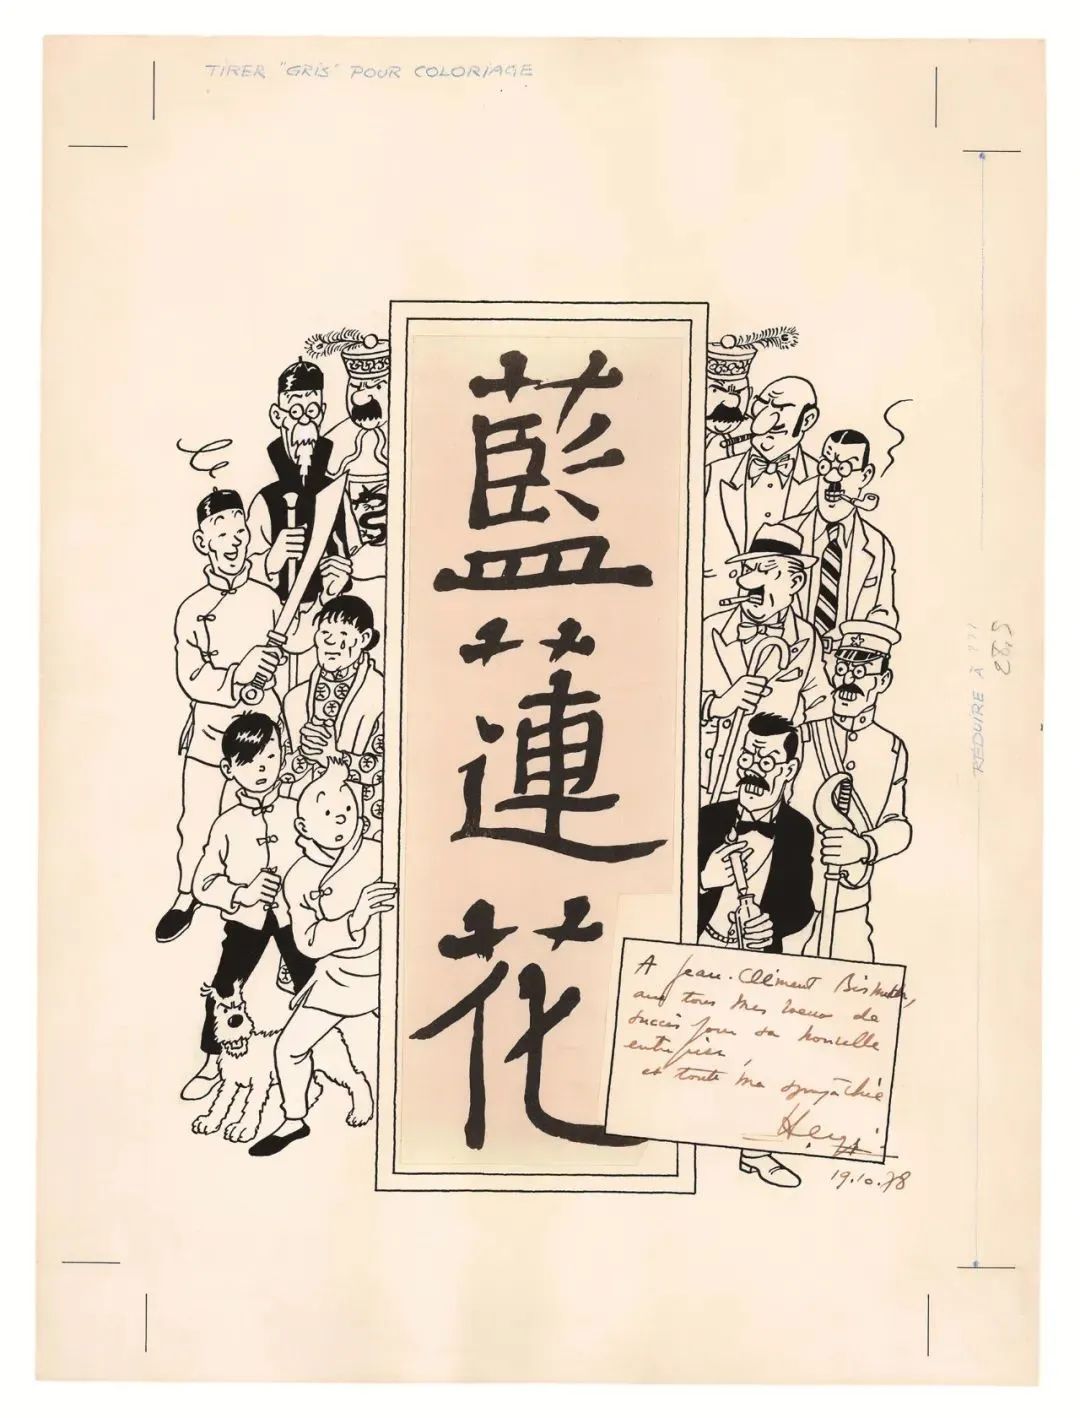 TIRER "GRIS" POUR COLORIAGE
藍
蓮
花
RÉDUIRE À ???
A Jean-Clément
tous mes vœux de
succès pour sa nouvelle
et toute ma sympathie
Hergé
19.10.78